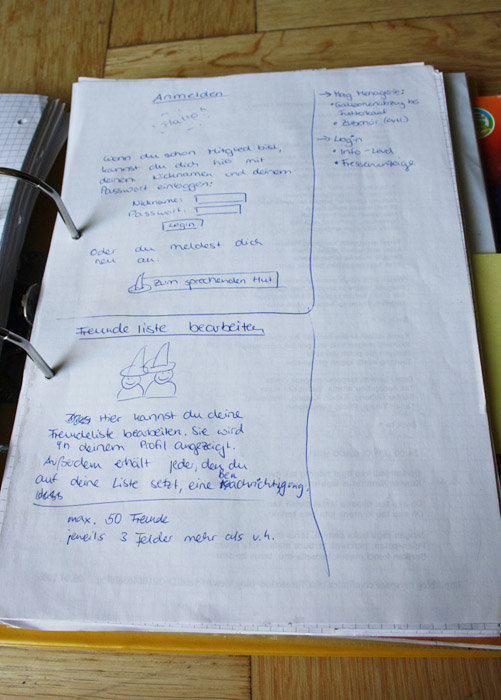 Anmelden
Hallo
Wenn du schon Mitglied bist,
kannst du dich hier mit
deinem Nicknamen und deinem
Passwort einloggen:
Nickname:
Passwort:
Login
Oder du meldest dich
neu an:
Zum sprechenden Hut
Freunde liste bearbeiten
Hier kannst du deine
Freundeliste bearbeiten. Sie wird
in deinem Profil angezeigt.
Außerdem erhält jeder, den du
auf deine Liste setzt, eine Benachrichtigung.
max. 50 Freunde
jeweils 3 Felder mehr als v.h.
→ Mag. Menagerie:
Futterkauf
• Zubehör
→ Login
• Info-